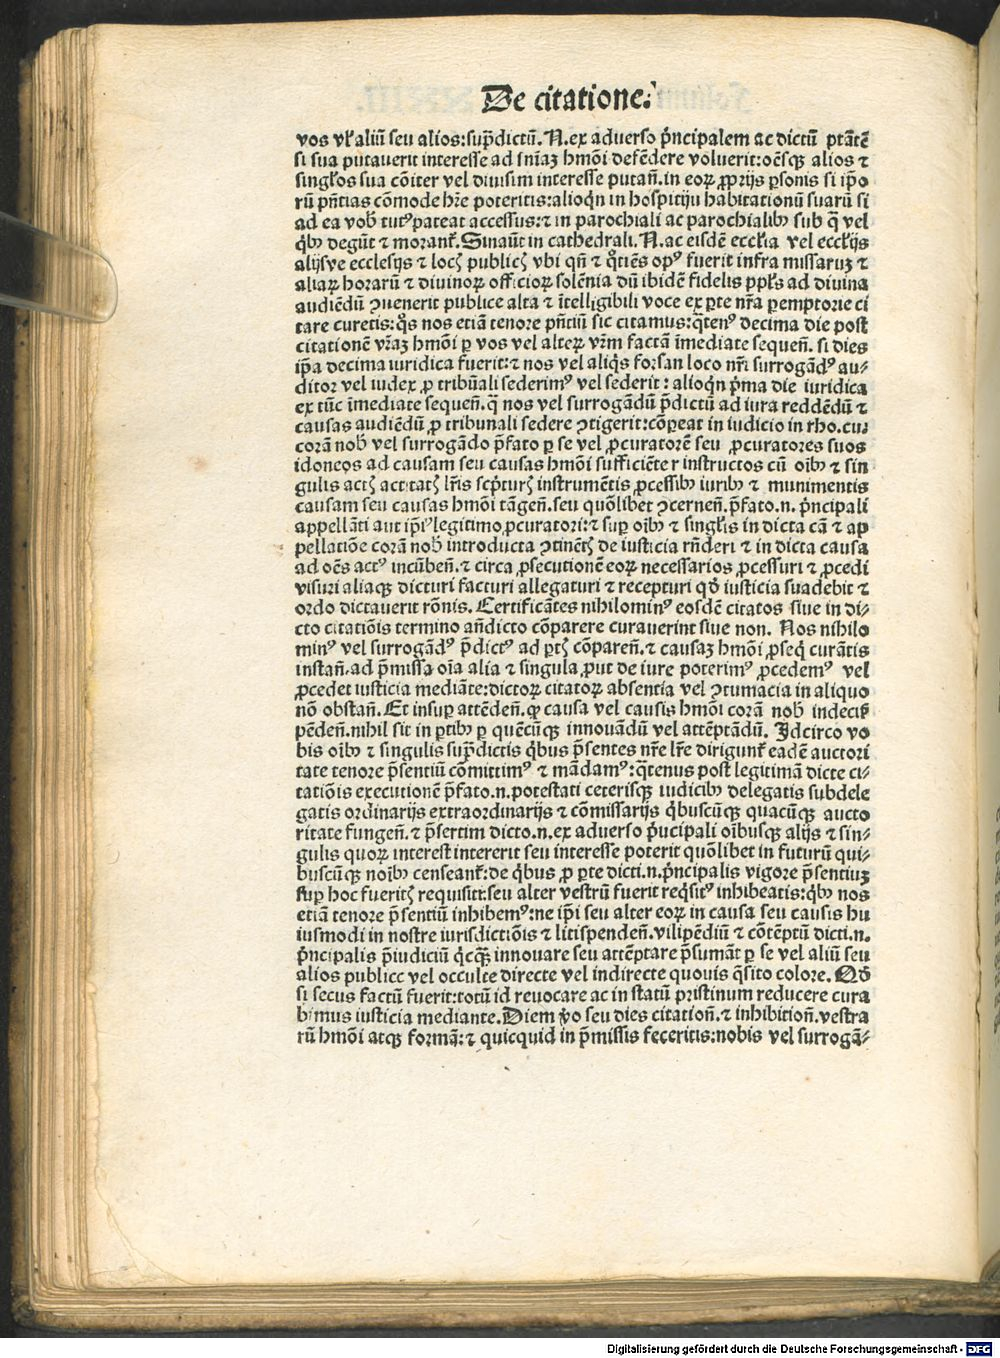 De citatione.
vos vl̕ aliū seu alios: sup̄dictū. N. ex aduerso p̄ncipalem ac dictū ptātē
si sua putauerit interesse ad sn̄iaꝫ hmōi defēdere voluerit: oēsqꝫ alios ⁊
singl̕os sua cōiter vel diuisim interesse putan̄. in eoꝝ ꝓprijs ꝑsonis si ip̄o
rū pn̄tias cōmode hr̄e poteritis: alioqn̄ in hospitiju habitationū suarū si
ad ea vob̄ tutꝰ pateat accessus: ⁊ in parochiali ac parochialibꝫ sub q̄ vel
qͥbꝫ degūt ⁊ moranť. Sinaūt in cathedrali. N. ac eisdē eccl̕ia vel eccl̕ijs
alijsve ecclesijs ⁊ locꝭ publicꝭ vbi qn̄ ⁊ qͦtiēs opꝰ fuerit infra missaruꝫ ⁊
aliaꝝ horarū ⁊ diuinoꝝ officioꝝ solēnia dū ibidē fidelis ppl̕s ad diuina
audiēdū ꝯuenerit publice alta ⁊ ītelligibili voce ex ꝑte nr̄a ꝑemptorie ci
tare curetis: qͦs nos etiā tenore pn̄tiū sic citamus: qͣtenꝰ decima die post
citationē vr̄aꝫ hmōi ꝑ vos vel alteꝝ vr̄m factā īmediate sequen̄. si dies
ip̄a decima iuridica fuerit: ⁊ nos vel aliqͥs forsan loco nr̄i surrogādꝰ au⸗
ditor vel iudex ꝓ tribūali sederimꝰ vel sederit: alioqͥn pͥma die iuridica
ex tūc īmediate sequen̄. qͣ nos vel surrogādū p̄dictū ad iura reddēdū ⁊
causas audiēdū ꝓ tribunali sedere ꝯtigerit: cōꝑeat in iudicio in rho. cu:
corā nob̄ vel surrogādo p̄fato ꝑ se vel ꝓcuratorē seu ꝓcuratores suos
idoneos ad causam seu causas hmōi sufficiēte r instructos cū oībꝫ ⁊ sin
gulis actꝭ actitatꝭ lr̄is scp̄turꝭ instrumētis ꝓcessibꝫ iuribꝫ ⁊ munimentis
causam seu causas hmōi tāgen̄. seu quōlibet ꝯcernen̄. p̄fato. n. pͥncipali
appellāti aut ip̄iꝰ legitimo ꝓcuratori: ⁊ suꝑ oībꝫ ⁊ singl̕is in dicta cā ⁊ ap
pellatiōe corā nob̄ introducta ꝯtinētꝭ de iusticia rn̄deri ⁊ in dicta causa
ad oēs actꝰ incūben̄. ⁊ circa ꝓsecutionē eoꝝ necessarios ꝓcessuri ⁊ ꝓcedi
visuri aliaqꝫ dicturi facturi allegaturi ⁊ recepturi qd̕ iusticia suadebit ⁊
ordo dictauerit rōnis. Certificātes nihilominꝰ eosdē citatos siue in di⸗
cto citatiōis termino an̄dicto cōparere curauerint siue non. Nos nihilo
minꝰ vel surrogādꝰ p̄dictꝰ ad ꝑtꝭ cōparen̄. ⁊ causaꝫ hmōi ꝓseqͥ curātis
instan̄. ad p̄missa oīa alia ⁊ singula ꝓut de iure poterimꝰ ꝓcedemꝰ vel
ꝓcedet iusticia mediāte: dictoꝝ citatoꝝ absentia vel ꝯtumacia in aliquo
nō obstan̄. Et insuꝑ attēden̄. ꝙ causa vel causis hmōi corā nob̄ indecis̕
pēden̄. nihil sit in ꝑtibꝫ ꝑ quēcūqꝫ innouādū vel attēptādū. Idcirco vo
bis oībꝫ ⁊ singulis sup̄dictis qͥbus p̄sentes nr̄e lr̄e dirigunť eadē auctori
tate tenore p̄sentiū cōmittimꝰ ⁊ mādamꝰ: qͣtenus post legitimā dicte ci⸗
tatiōis executionē p̄fato. n. potestati ceterisqꝫ iudicibꝫ delegatis subdele
gatis ordinarijs extraordinarijs ⁊ cōmissarijs qͥbuscūqꝫ quacūqꝫ aucto
ritate fungen̄. ⁊ p̄sertim dicto. n. ex aduerso pͥncipali oībusqꝫ alijs ⁊ sin⸗
gulis quoꝝ interest intererit seu interesse poterit quōlibet in futurū qui⸗
buscūqꝫ noībꝫ censeanť: de qͥbus ꝓ ꝑte dicti. n. pͥncipalis vigore p̄sentiuꝫ
suꝑ hoc fueritꝭ requisiti: seu alter vestrū fuerit reqͥsitꝰ inhibeatis: qͥbꝫ nos
etiā tenore p̄sentiū inhibemꝰ: ne ip̄i seu alter eoꝝ in causa seu causis hu
iusmodi in nostre iurisdictiōis ⁊ litispenden̄. vilipēdiū ⁊ cōtēptū dicti. n.
pͥncipalis p̄iudiciū qͥcqͣꝫ innouare seu attēptare p̄sumāt ꝑ se vel aliū seu
alios publice vel occulte directe vel indirecte quouis q̄sito colore. Qd̕
si secus factū fuerit: totū id reuocare ac in statū pristinum reducere cura
bimus iusticia mediante. Diem v̕o seu dies citation̄. ⁊ inhibition̄. vestra
rū hmōi atqꝫ formā: ⁊ quicquid in p̄missis feceritis: nobis vel surrogā⸗
Digitalisierung gefördert durch die Deutsche Forschungsgemeinschaft - DFG